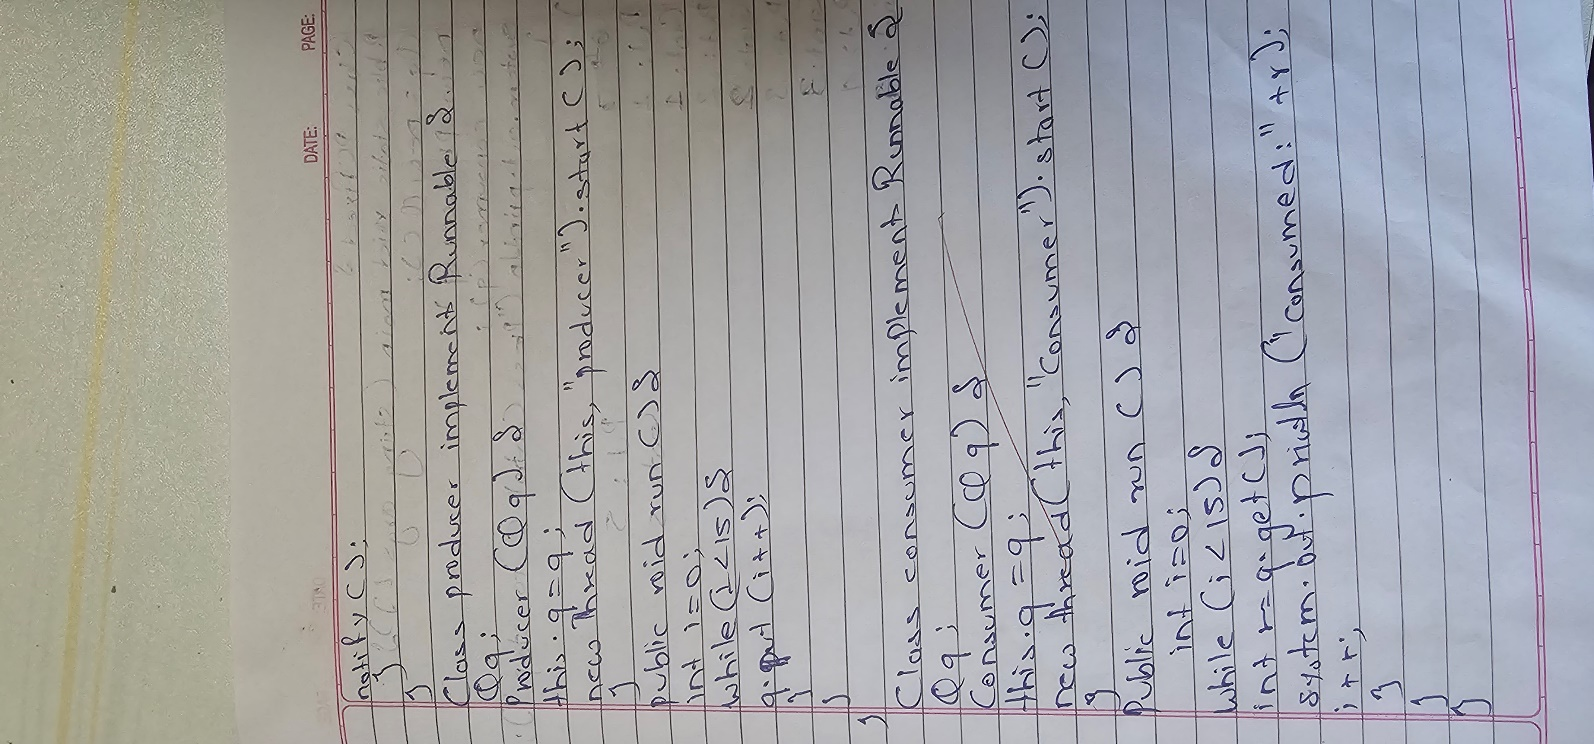 DATE: PAGE:
notify();
}
}
Class producer implement Runnable {
Q q;
Producer (Q q) {
this.q = q;
new Thread (this, "producer").start ();
}
public void run () {
int i=0;
while (i<15) {
q.put (i++);
}
}
}
Class consumer implement Runnable {
Q q;
Consumer (Q q) {
this.q = q;
new thread (this, "Consumer").start ();
}
Public void run () {
int i=0;
while (i<15) {
int r=q.get();
system.out.println ("consumed:" +r);
i++;
}
}
}